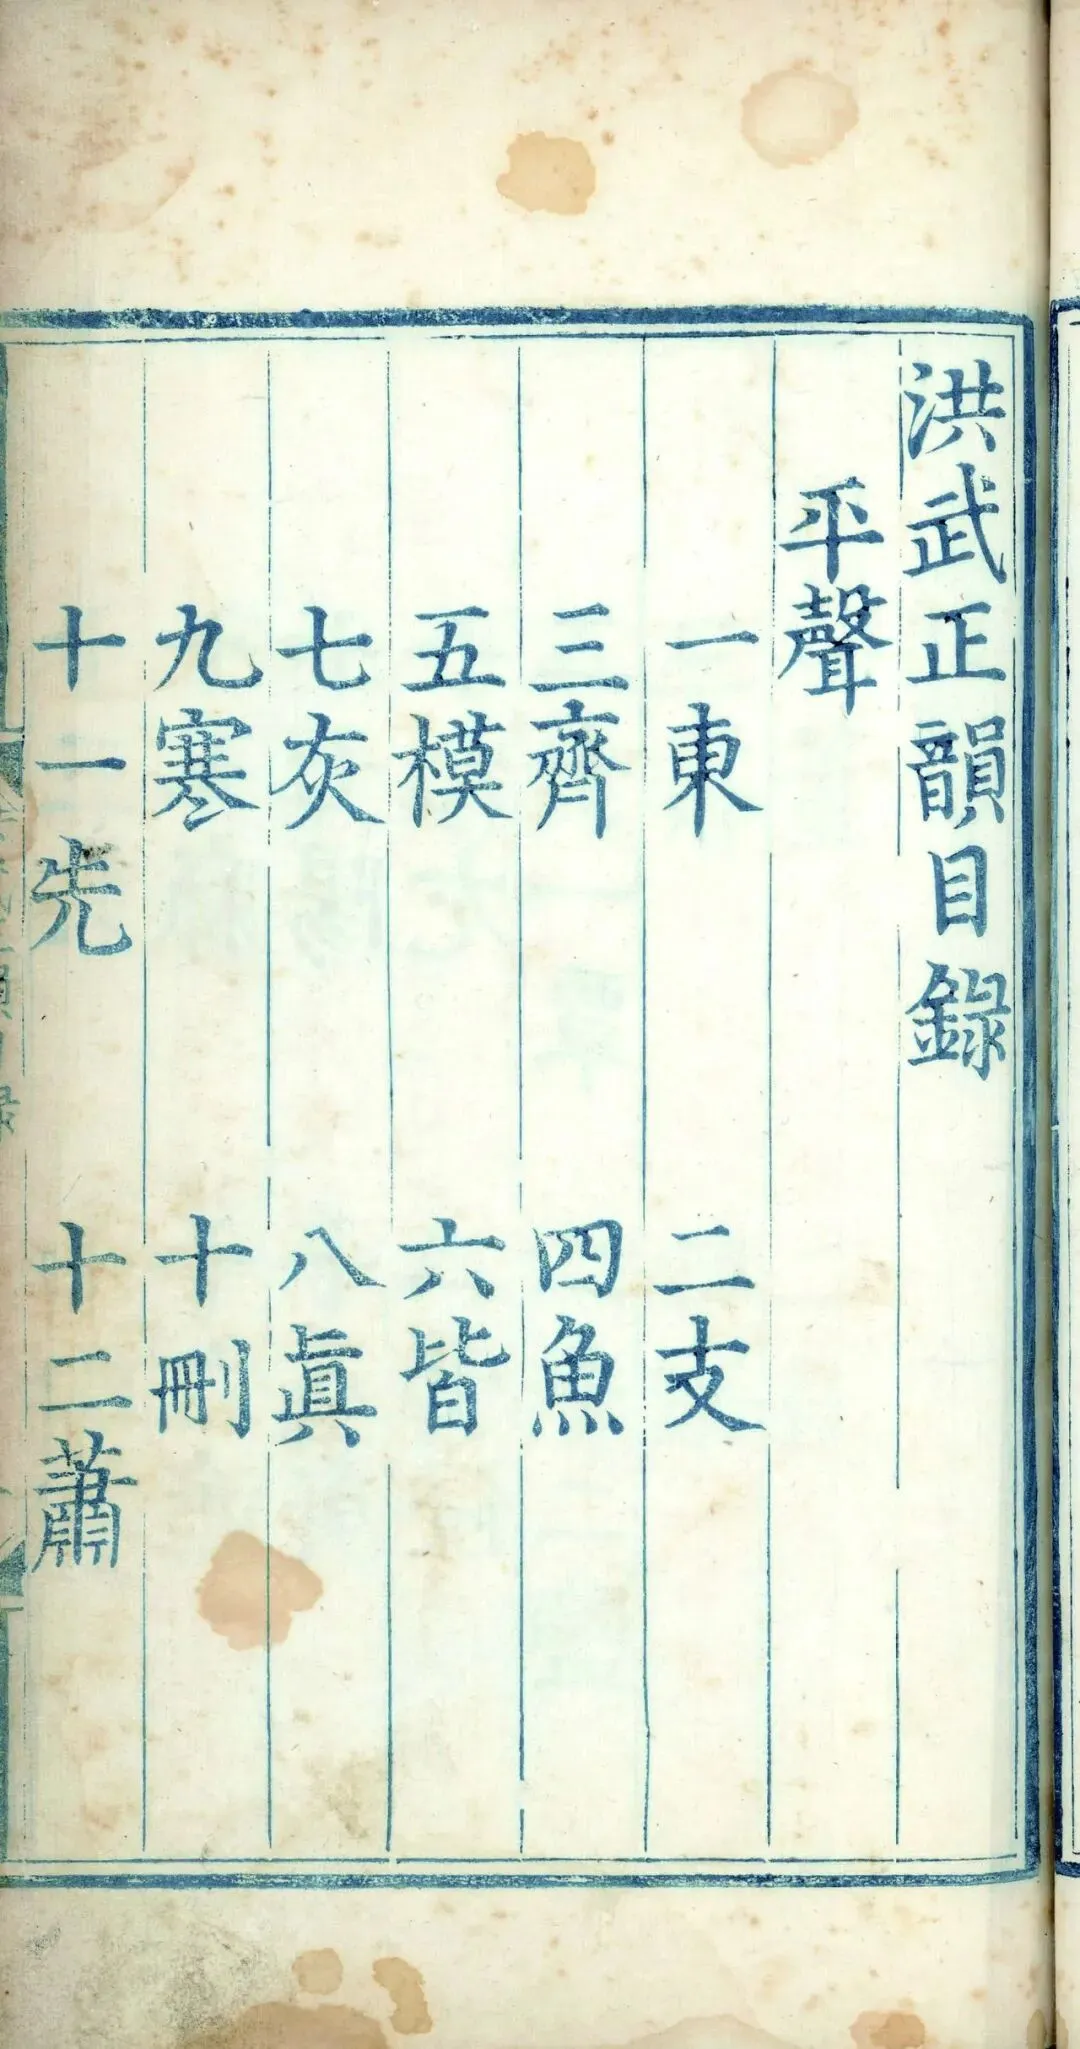 洪武正韻目錄
平聲
一東 二支
三齊 四魚
五模 六皆
七灰 八眞
九寒 十刪
十一先 十二蕭